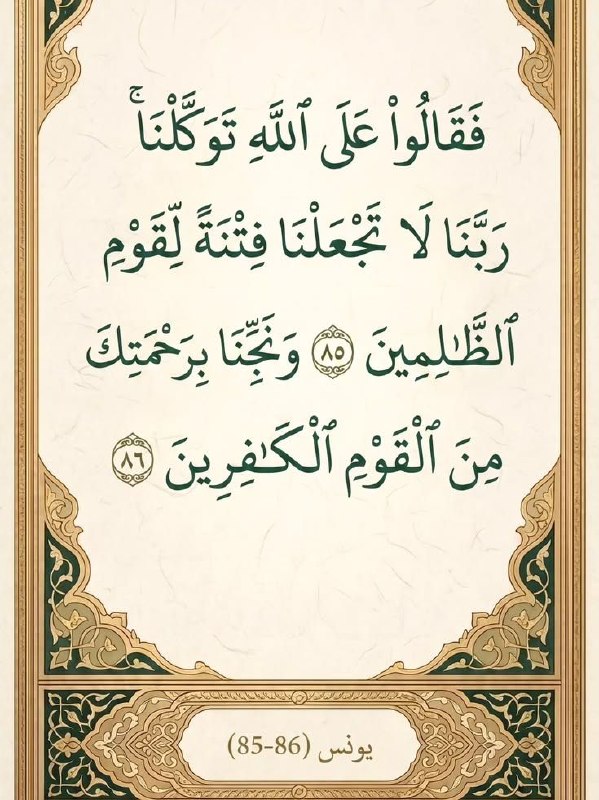 فَقَالُوا۟ عَلَى ٱللَّهِ تَوَكَّلْنَاۚ
رَبَّنَا لَا تَجْعَلْنَا فِتْنَةً لِّقَوْمِ
ٱلظَّـٰلِمِينَ ٨٥ وَنَجِّنَا بِرَحْمَتِكَ
مِنَ ٱلْقَوْمِ ٱلْكَـٰفِرِينَ ٨٦
يونس (86-85)